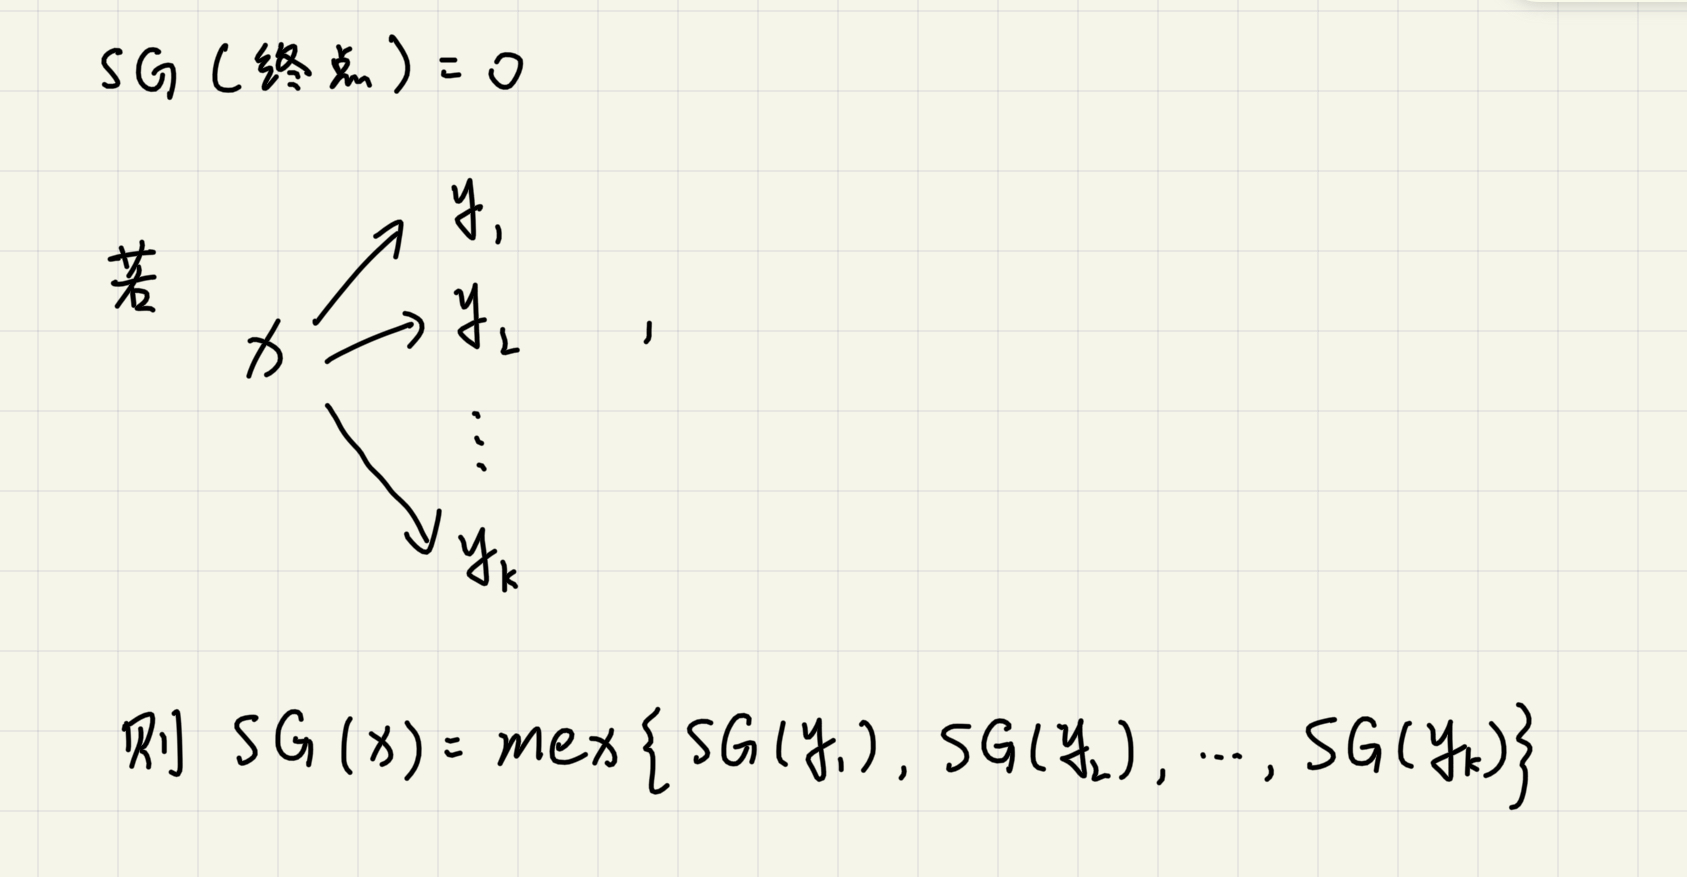 SG(终点)=0
y₁
若
x
y₂ ,
⋮
yₖ
则 SG(x)=mex{SG(y₁), SG(y₂), ..., SG(yₖ)}